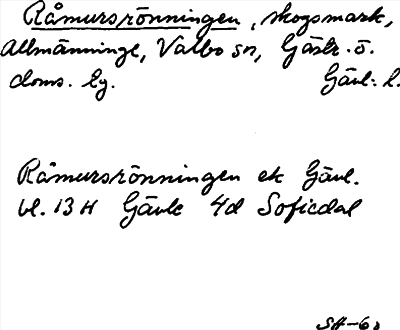 Råmursrönningen, skogsmark,
Allmänninge, Valbo sn, Gästr. ö.
doms. lg. Gävl: l.
Råmursrönningen ek Gävl.
bl. 13 H Gävle 4d Soficdal